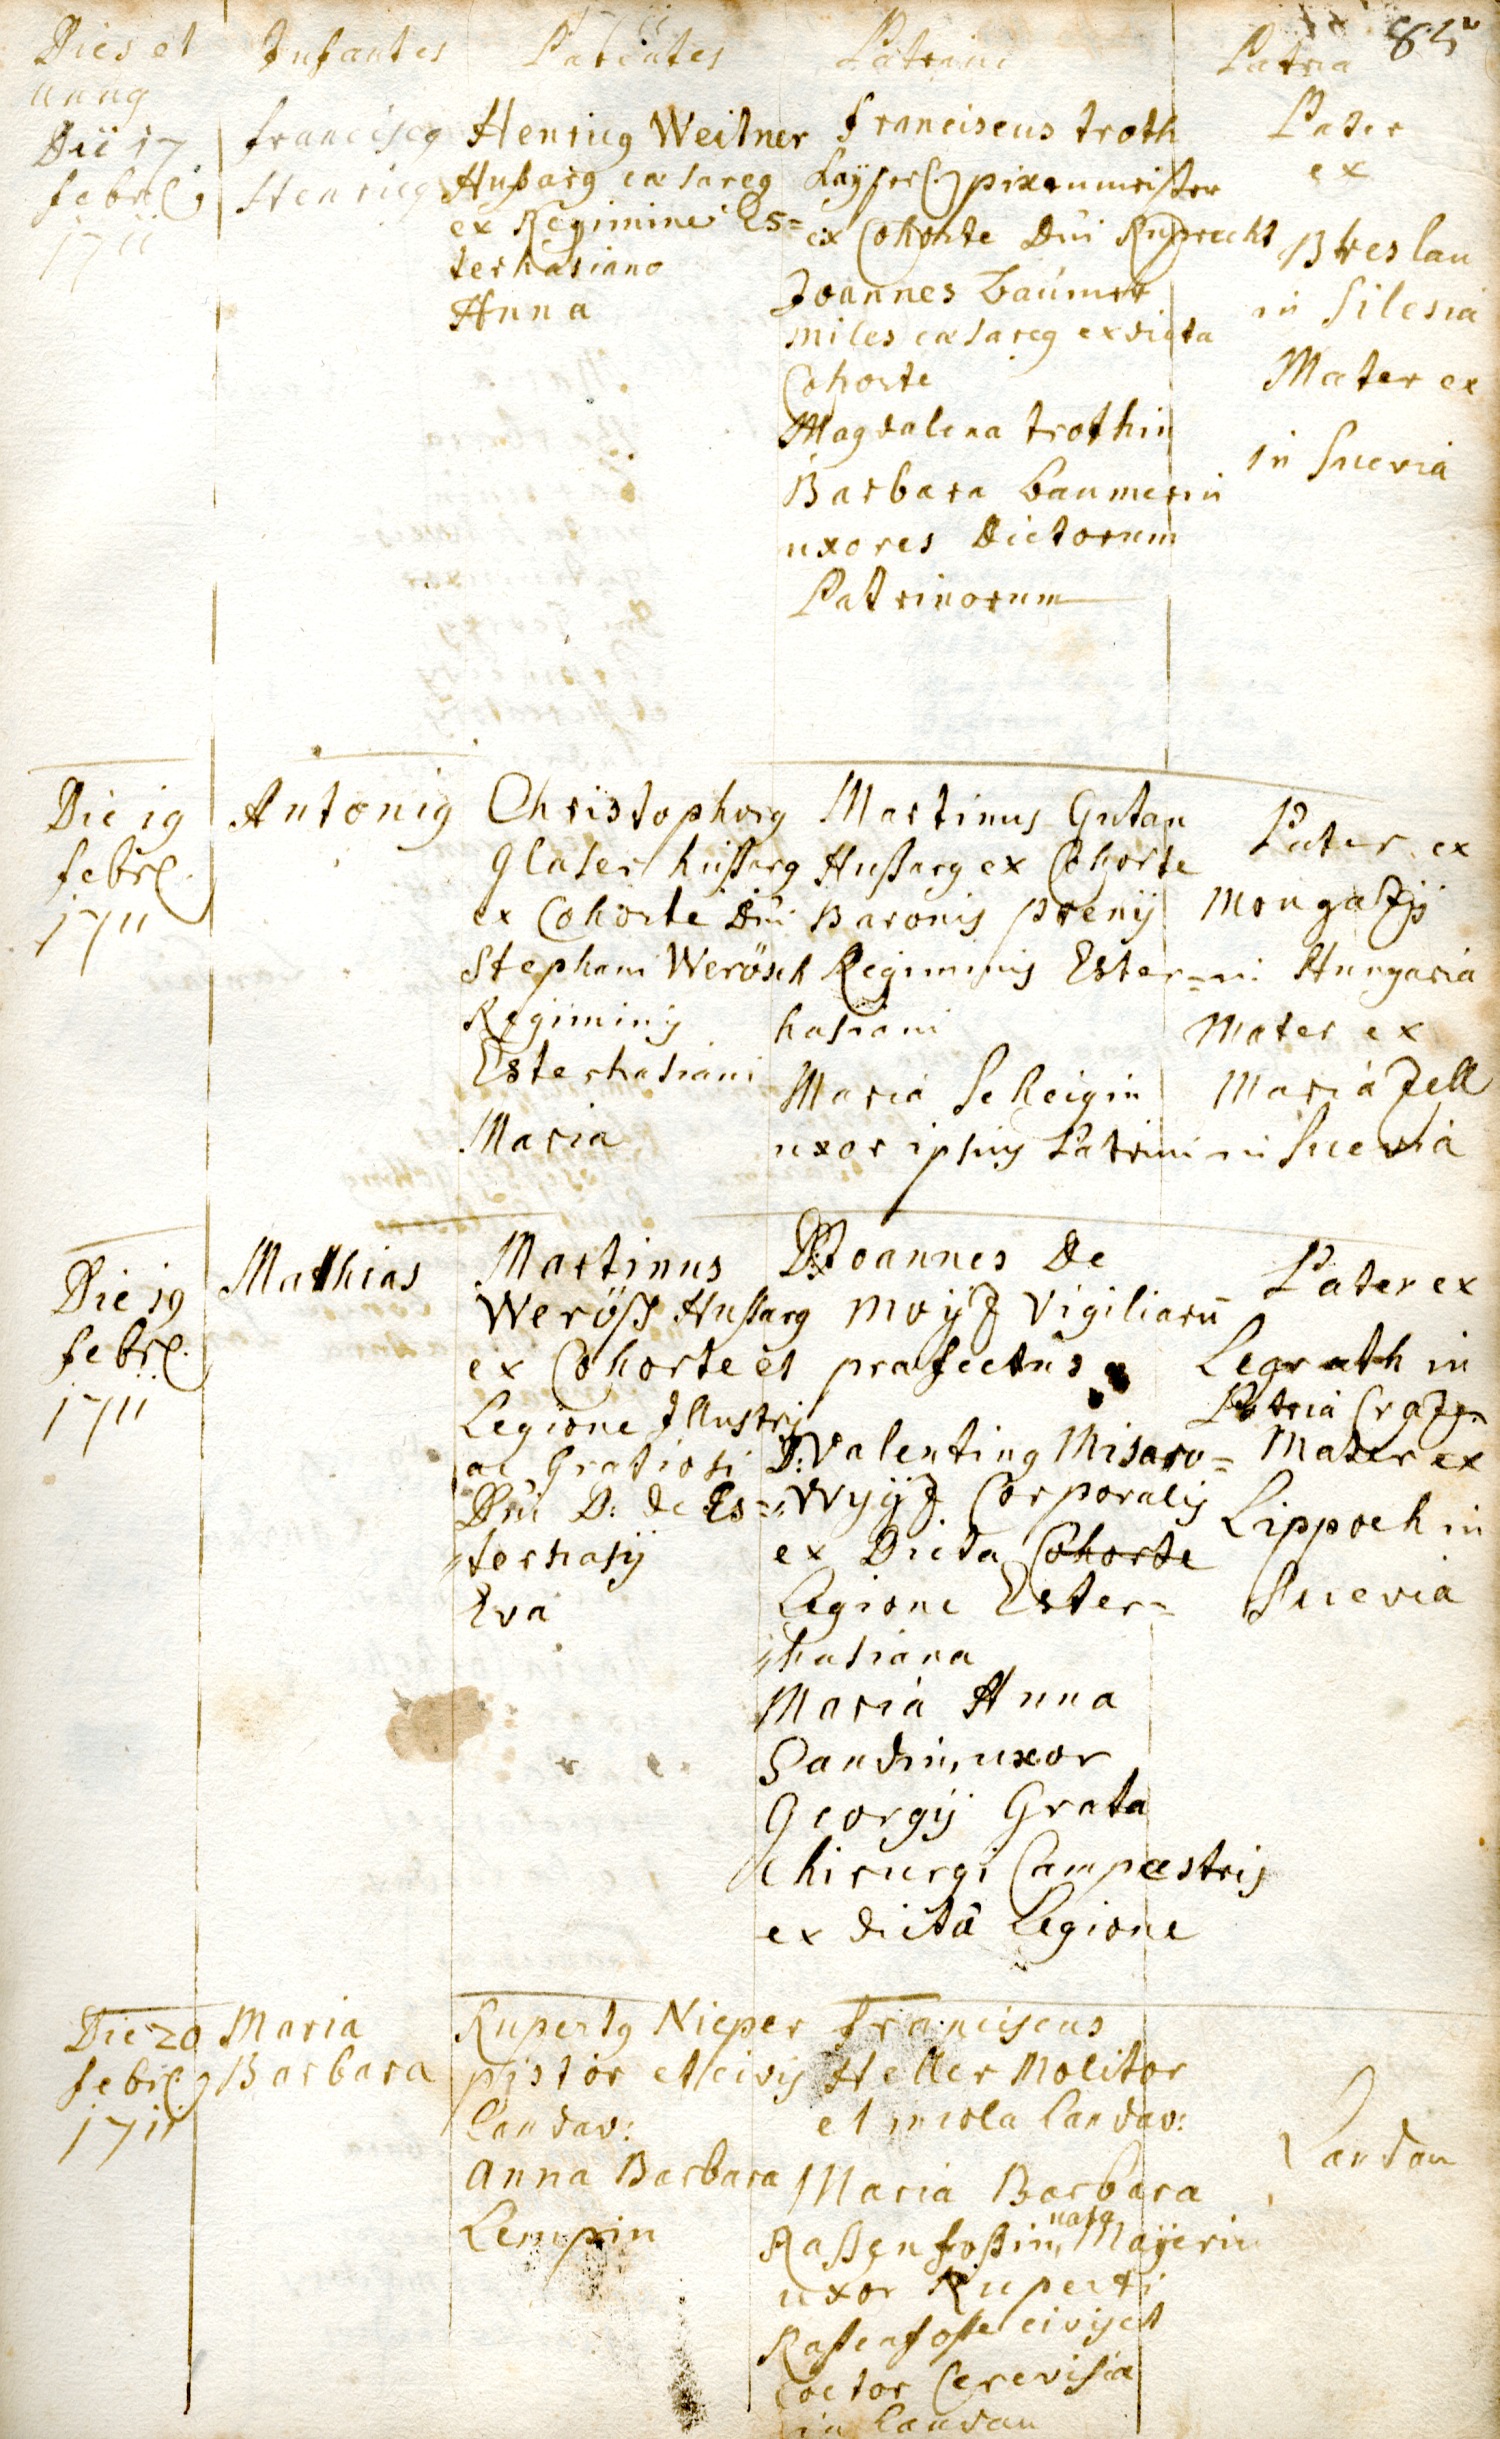 85
Dies et
annus
Infantes
Parentes
Patrini
Patria
Die 17
febr:
1711
Franciscus
Henricus
Henricus Weitner
Hußarus cæsareus
ex Regimine Es=
terhasiano
Anna
Franciscus troth
Kaÿser: pixenmeister
ex Cohorte Dni Ruprecht
Joannes baumer
miles cæsareus ex dicta
Cohorte
Magdalena trothin
Barbara baumerin
uxores Dictorum
Patrinorum
Pater
ex
Breslau
in Silesia
Mater ex
in Suevia
Die 19
febr:
1711
Antonius
Christophorus
Glaser hußarus
ex Cohorte Dni
Stephani Werösch
Regiminis
Esterhasiani
Maria
Martinus Gutan
Hußarus ex Cohorte
Baronis prenij
Regiminis Ester=
hasiani
Maria Scheigin
uxor ipsius Patrini
Pater ex
Mongatzÿ
in Hungaria
Mater ex
Maria Zell
in Suevia
Die 19
febr:
1711
Mathias
Martinus
Weröß Hußarus
ex Cohorte et
Legione Illustris
ac Gratiosi
Dni D: de Es=
terhasÿ
Eva
D: Joannes De
Moÿz Vigiliarū
præfectus
D: Valentinus Misaro=
Wÿÿz Corporalis
ex Dicta Cohorte
Legione Ester=
hasiana
Maria Anna
Sandrin, uxor
Georgij Grata
Chirurgi Campæstris
ex dictâ Legione
Pater ex
Legrath in
Patria
Mater ex
Lippoch in
Suevia
Die 20
febr:
1711
Maria
Barbara
Rupertus Nieper
pistor et civis
Landav:
Anna Barbara
Lempin
Franciscus
Heller Molitor
et incola Landav:
Maria Barbara
Raßenfoßin, nata Maÿerin
uxor Ruperti
Raßenfoße civis et
Coctor Cerevisiæ
in Landau
Landau